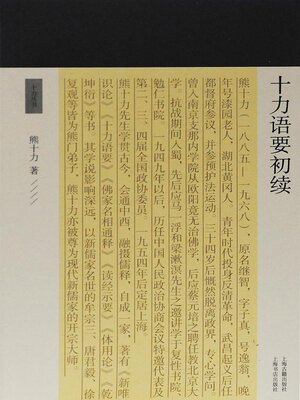 十力语要初续
熊十力（一八八五—一九六八），原名继智，字子真，号逸翁，晚
年号漆园老人，湖北黄冈人。青年时代投身反清革命，武昌起义后任
都督府参议，并参预护法运动。三十四岁后慨然脱离政界，专心学问。
曾入南京支那内学院从欧阳竟无治佛学，后应蔡元培之聘任教北京大
学。抗战期间入蜀，先后应马一浮和梁漱溟先生之邀讲学于复性书院、
勉仁书院。一九四九年以后，历任中国人民政治协商会议特邀代表及
第二、三、四届全国政协委员。一九五四年后定居上海。
熊十力先生学贯古今，会通中西，融摄儒释，自成一家，著有《新唯
识论》《十力语要》《佛家名相通释》《读经示要》《体用论》《乾
坤衍》等书，其学说影响深远，以新儒家名世的牟宗三、唐君毅、徐
复观等皆为熊门弟子，熊十力亦被尊为现代新儒家的开宗大师。
十力丛书
熊十力 著
上海古籍出版社
上海书店出版社